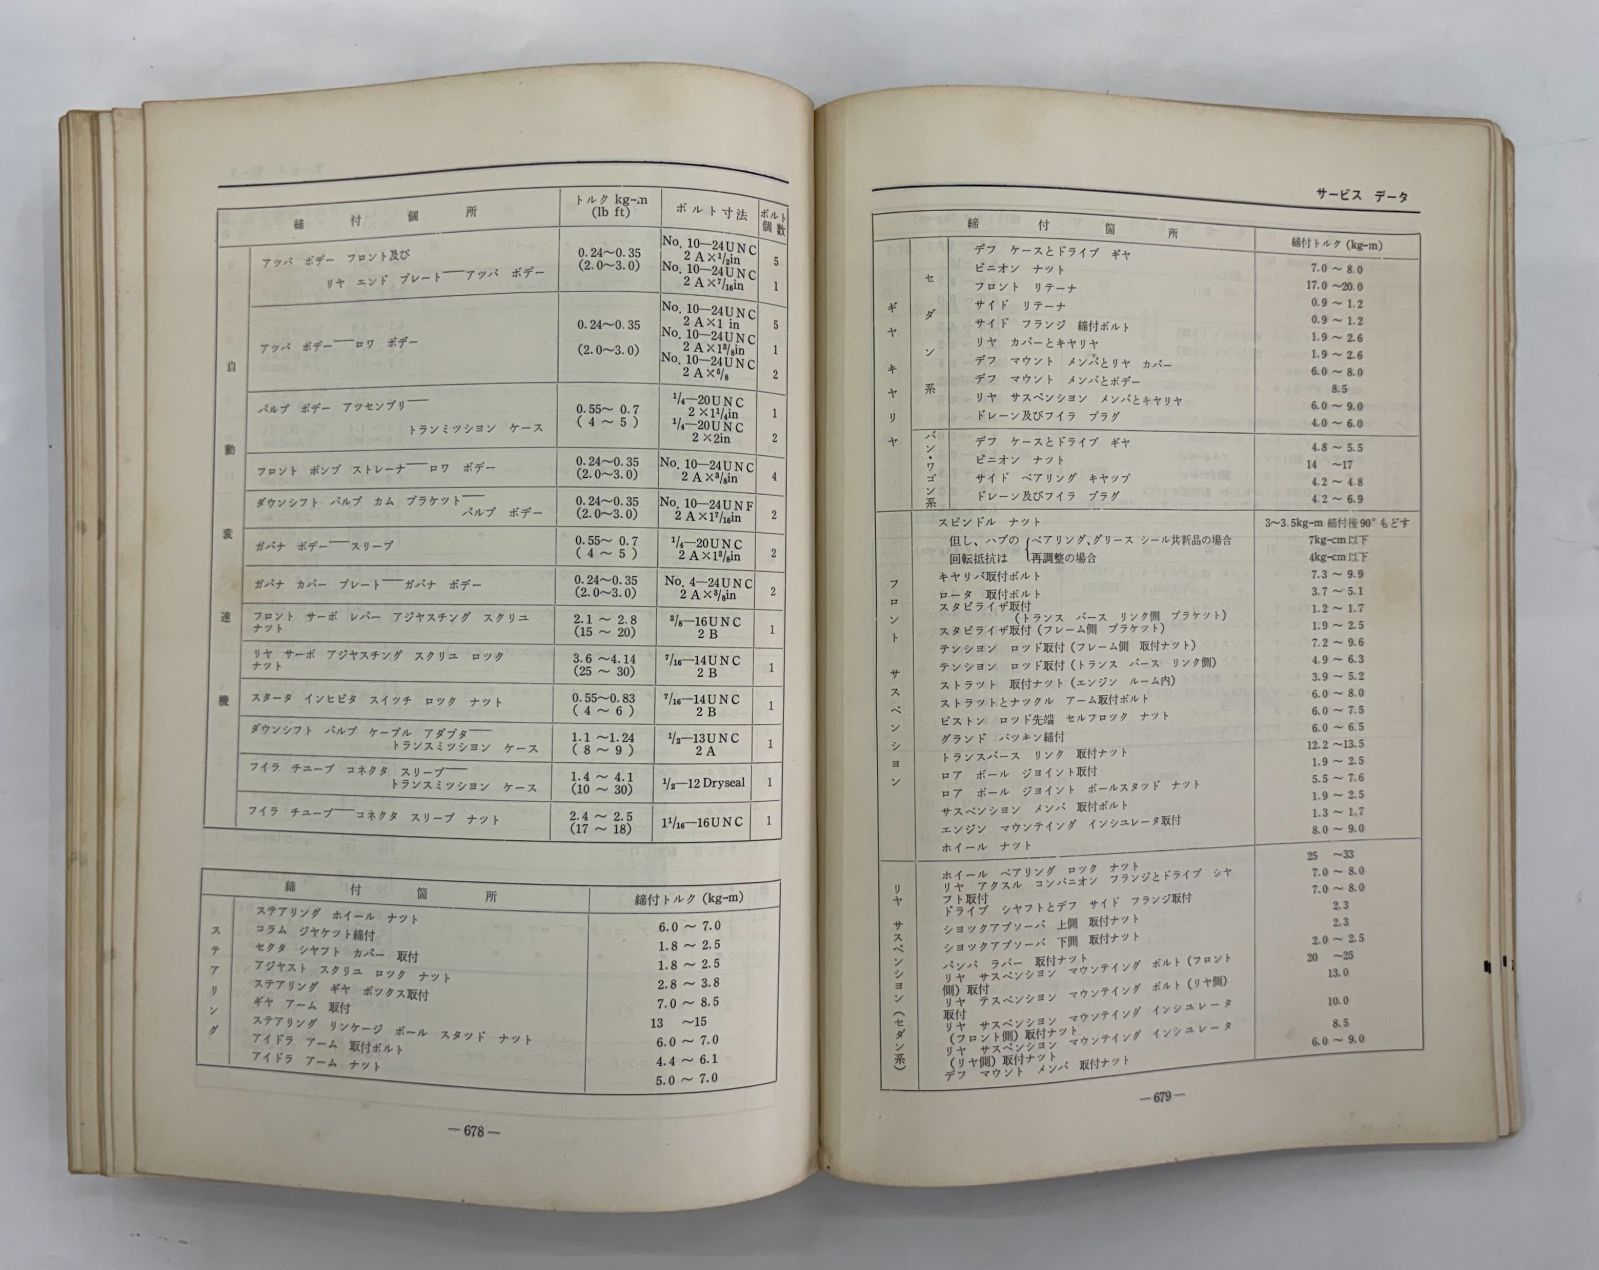 締付個所 トルク kg-m (lb ft) ボルト寸法 ボルト個数
自動変速機
アッパ ボデー フロント及び
リヤ エンド プレート──アッパ ボデー 0.24～0.35 (2.0～3.0)
No. 10―24UNC 2A×1/2in 5
No. 10―24UNC 2A×7/16in 1
アッパ ボデー──ロワ ボデー 0.24～0.35 (2.0～3.0)
No. 10―24UNC 2A×1 in 5
No. 10―24UNC 2A×1 3/8in 1
No. 10―24UNC 2A×5/8 2
バルブ ボデー アッセンブリ──
トランミッション ケース 0.55～ 0.7 ( 4 ～ 5 )
1/4―20UNC 2×1 1/4in 1
1/4―20UNC 2×2in 2
フロント ポンプ ストレーナ──ロワ ボデー 0.24～0.35 (2.0～3.0) No. 10―24UNC 2A×3/8in 4
ダウンシフト バルブ カム ブラケット──
バルブ ボデー 0.24～0.35 (2.0～3.0) No. 10―24UNF 2A×1 7/16in 2
ガバナ ボデー──スリーブ 0.55～ 0.7 ( 4 ～ 5 ) 1/4―20UNC 2A×1 3/8in 2
ガバナ カバー プレート──ガバナ ボデー 0.24～0.35 (2.0～3.0) No. 4―24UNC 2A×3/8in 2
フロント サーボ レバー アジヤスチング スクリユ
ナット 2.1 ～ 2.8 (15 ～ 20) 3/8―16UNC 2B 1
リヤ サーボ アジヤスチング スクリユ ロック
ナット 3.6 ～4.14 (25 ～ 30) 7/16―14UNC 2B 1
スタータ インヒビタ スイッチ ロック ナット 0.55～0.83 ( 4 ～ 6 ) 7/16―14UNC 2B 1
ダウンシフト バルブ ケーブル アダプタ──
トランスミッション ケース 1.1 ～1.24 ( 8 ～ 9 ) 1/2―13UNC 2A 1
フイラ チユーブ コネクタ スリーブ──
トランスミッション ケース 1.4 ～ 4.1 (10 ～ 30) 1/2―12 Dryseal 1
フイラ チユーブ──コネクタ スリーブ ナット 2.4 ～ 2.5 (17 ～ 18) 1 1/16―16UNC 1
締付箇所 締付トルク (kg-m)
ステアリング
ステアリング ホイール ナット 6.0 ～ 7.0
コラム ジヤケット締付 1.8 ～ 2.5
セクタ シヤフト カバー 取付 1.8 ～ 2.5
アジヤスト スクリユ ロック ナット 2.8 ～ 3.8
ステアリング ギヤ ボックス取付 7.0 ～ 8.5
ギヤ アーム 取付 13 ～15
ステアリング リンケージ ボール スタッド ナット 6.0 ～ 7.0
アイドラ アーム 取付ボルト 4.4 ～ 6.1
アイドラ アーム ナット 5.0 ～ 7.0
―678―
サービス データ
締付箇所 締付トルク (kg-m)
ギヤキヤリヤ
セダン系
デフ ケースとドライブ ギヤ 7.0 ～ 8.0
ピニオン ナット 17.0 ～20.0
フロント リテーナ 0.9 ～ 1.2
サイド リテーナ 0.9 ～ 1.2
サイド フランジ 締付ボルト 1.9 ～ 2.6
リヤ カバーとキヤリヤ 1.9 ～ 2.6
デフ マウント メンバとリヤ カバー 6.0 ～ 8.0
デフ マウント メンバとボデー 8.5
リヤ サスペンション メンバとキヤリヤ 6.0 ～ 9.0
ドレーン及びフイラ プラグ 4.0 ～ 6.0
バン・ワゴン系
デフ ケースとドライブ ギヤ 4.8 ～ 5.5
ピニオン ナット 14 ～17
サイド ベアリング キヤップ 4.2 ～ 4.8
ドレーン及びフイラ プラグ 4.2 ～ 6.9
フロント サスペンション
スピンドル ナット 3～3.5kg-m 締付後90°もどす
但し、ハブの ベアリング、グリース シール共新品の場合 7kg-cm以下
回転抵抗は 再調整の場合 4kg-cm以下
キヤリパ取付ボルト 7.3 ～ 9.9
ロータ 取付ボルト 3.7 ～ 5.1
スタビライザ取付
(トランス バース リンク側 ブラケット) 1.2 ～ 1.7
スタビライザ取付 (フレーム側 ブラケット) 1.9 ～ 2.5
テンション ロッド取付 (フレーム側 取付ナット) 7.2 ～ 9.6
テンション ロッド取付 (トランス バース リンク側) 4.9 ～ 6.3
ストラット 取付ナット (エンジン ルーム内) 3.9 ～ 5.2
ストラットとナックル アーム取付ボルト 6.0 ～ 8.0
ピストン ロッド先端 セルフロック ナット 6.0 ～ 7.5
グランド パッキン締付 6.0 ～ 6.5
トランスバース リンク 取付ナット 12.2 ～13.5
ロア ボール ジョイント取付 1.9 ～ 2.5
ロア ボール ジョイント ボールスタッド ナット 5.5 ～ 7.6
サスペンション メンバ 取付ボルト 1.9 ～ 2.5
エンジン マウンテイング インシユレータ取付 1.3 ～ 1.7
ホイール ナット 8.0 ～ 9.0
リヤ サスペンション (セダン系)
ホイール ベアリング ロック ナット 25 ～33
リヤ アクスル コンパニオン フランジとドライブ シヤ
フト取付 7.0 ～ 8.0
ドライブ シヤフトとデフ サイド フランジ取付 7.0 ～ 8.0
ショックアブソーバ 上側 取付ナット 2.3
ショックアブソーバ 下側 取付ナット 2.3
バンパ ラバー 取付ナット 2.0 ～ 2.5
リヤ サスペンション マウンテイング ボルト (フロント
側) 取付 20 ～25
リヤ テスペンション マウンテイング ボルト (リヤ側)
取付 13.0
リヤ サスペンション マウンテイング インシユレータ
(フロント側) 取付ナット 10.0
リヤ サスペンション マウンテイング インシユレータ
(リヤ側) 取付ナット 8.5
デフ マウント メンバ 取付ナット 6.0 ～ 9.0
―679―